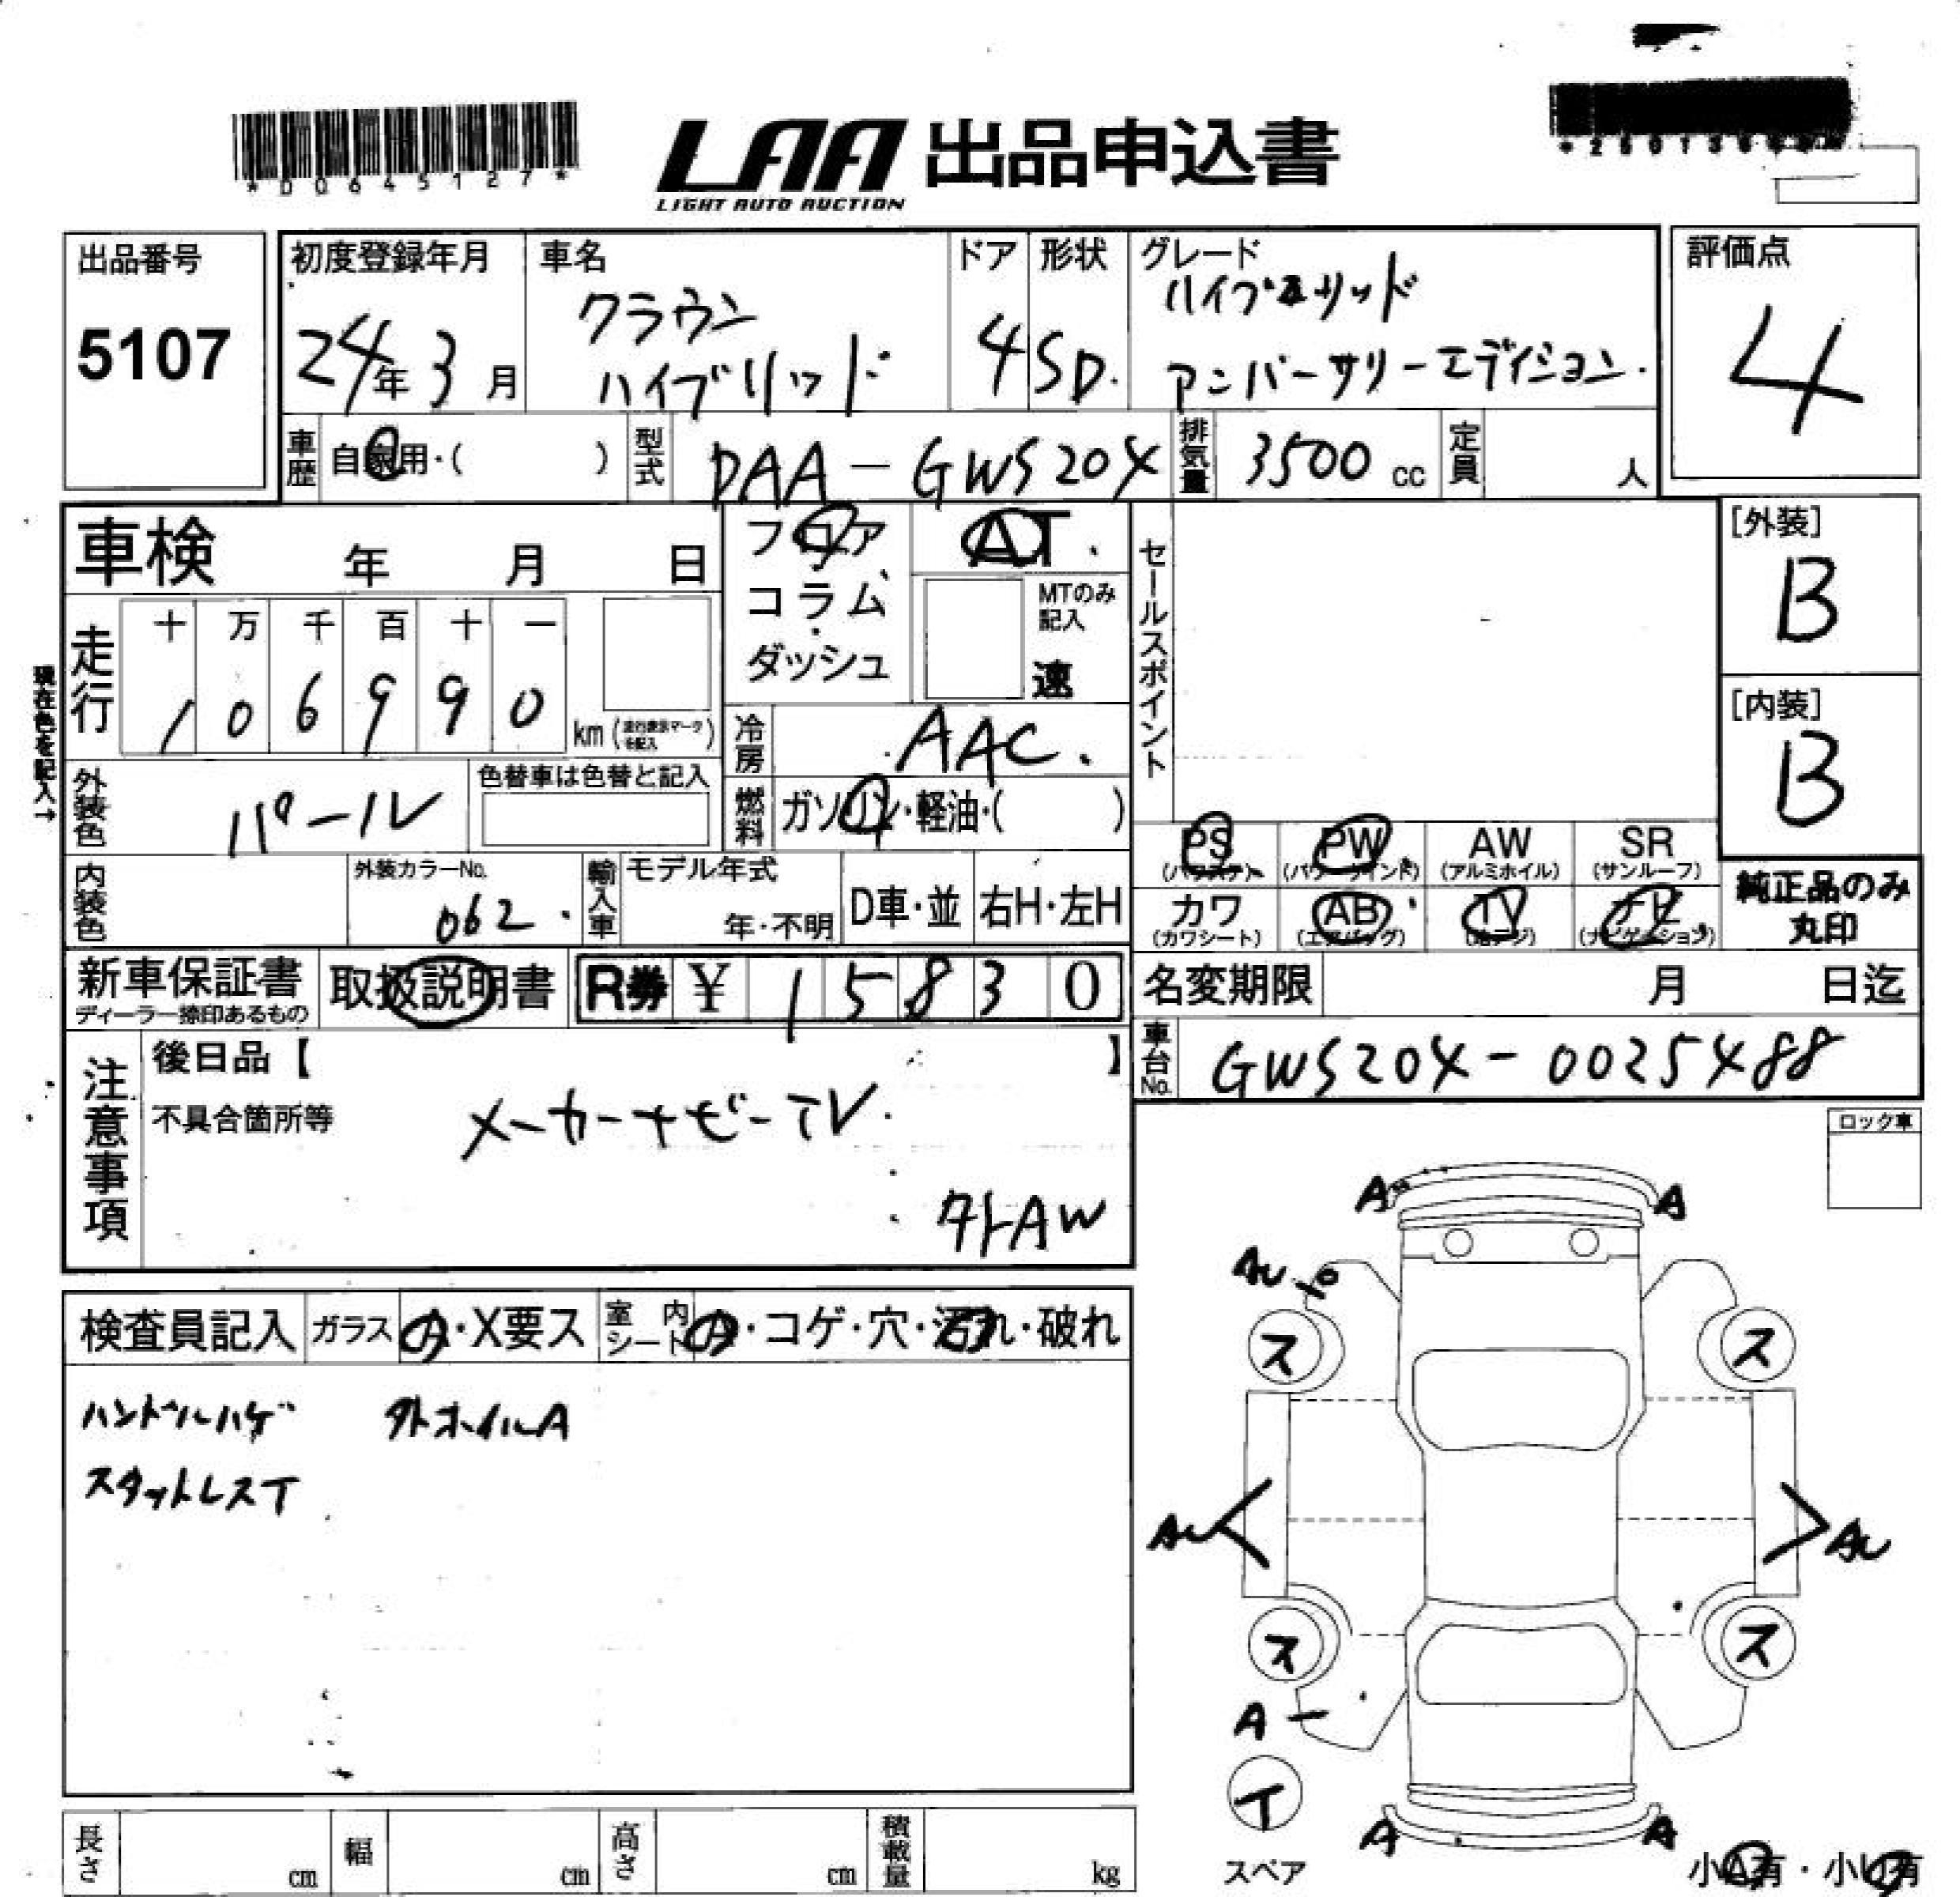 *D0645127*
LAA 出品申込書
LIGHT AUTO AUCTION
出品番号
5107
初度登録年月
24年3月
車名
クラウン
ハイブリッド
ドア
4
形状
SD.
グレード
ハイブリッド
アニバーサリーエディション.
評価点
4
車歴
自家用・( )
型式
DAA-GWS204
排気量
3500 cc
定員
人
車検 年 月 日
フロア
コラム
ダッシュ
AT.
MTのみ
記入
速
セールスポイント
[外装]
B
[内装]
B
現在色を記入→
走行
十 万 千 百 十 一
1 0 6 9 9 0
km (走行表示マークを記入)
冷房
AAC.
外装色
パール
色替車は色替と記入
燃料
ガソリン・軽油・( )
PS PW AW SR
(パワステ) (パワーウインド) (アルミホイル) (サンルーフ)
カワ AB TV ナビ
(カワシート) (エアバッグ) (地デジ) (ナビゲーション)
純正品のみ
丸印
内装色
外装カラーNo.
062.
輸入車
モデル年式
年・不明
D車・並
右H・左H
新車保証書
ディーラー捺印あるもの
取扱説明書
R券 ¥ 1 5 8 3 0
名変期限 月 日迄
車台No.
GWS204-0025488
注意事項
後日品【 】
不具合箇所等
メーカーナビーTV.
外AW
ロック車
検査員記入
ガラス
A・X要ス
室内
シート
A・コゲ・穴・汚れ・破れ
ハンドルハゲ 外ホイルA
スタットレスT
A A
AU
ス ス
AU AU
ス ス
A
T
スペア
A A
小A有・小U有
長さ cm
幅 cm
高さ cm
積載量 kg